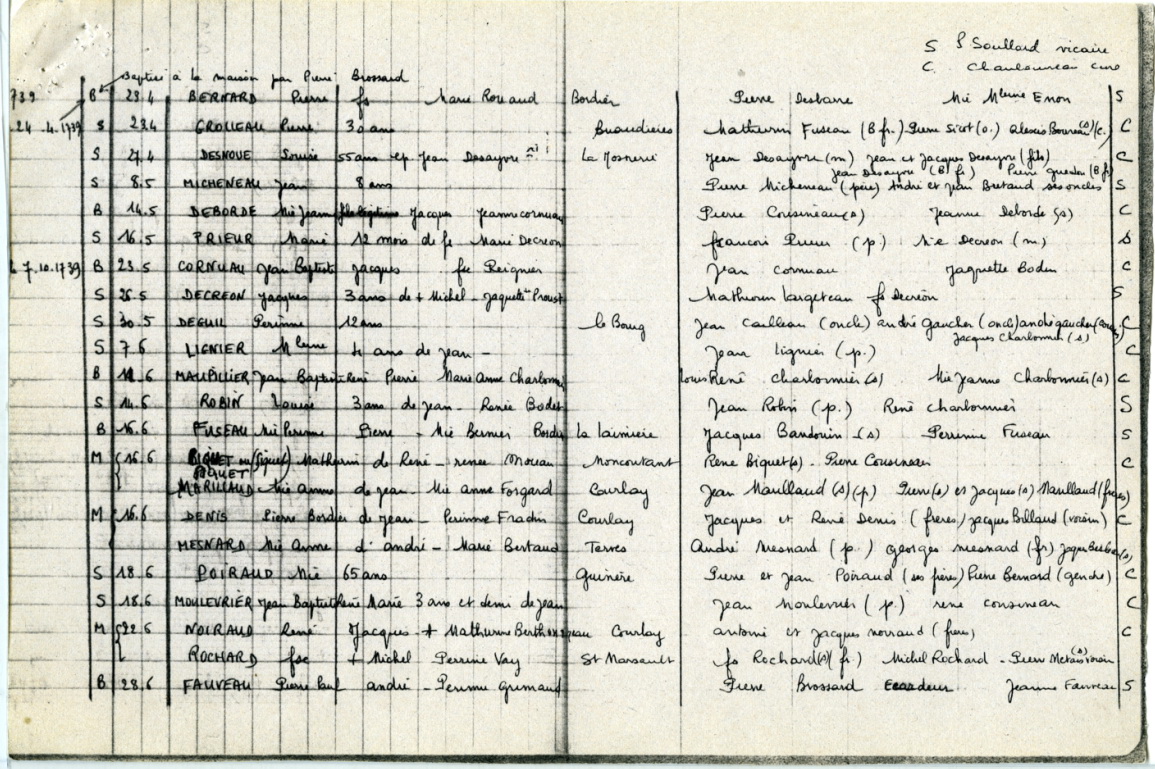 S P Soullard vicaire
C. Charbonneau cure
Baptisé à la maison par Pierre Brossard
739 B 23.4 BERNARD Pierre fs Marie Rouaud Bordier Pierre Desbarre Mie Mleine Enon S
24 .4.1739 S 23.4 GROLLEAU Pierre 30 ans Bruaudieres Mathurin Fuseau (B fr.) Pierre Sicot (o.) Alexis (s) (c.) C
S 27.4 DESNOUE Louise 55 ans ep Jean Desayvre La Mosnerie Jean Desayvre (m) Jean et Jacques Desayvre (fils) C
Jean Desayvre (B fr) Pierre (B fr)
S 8.5 MICHENEAU Jean 8 ans Pierre Micheneau (père) André et Jean Bretaud ses oncles S
B 14.5 DEBORDE Mie Jeanne Jacques Jeanne cornuau Pierre Cousineau (s) Jeanne Deborde (s) C
S 16.5 PRIEUR Marie 12 mois de fs Marie Decreon francois Prieur (p.) Mie Decreon (m) S
7.10.1739 B 23.5 CORNUAU Jean Baptiste Jacques fse Reignier Jean cornuau Jaquette Bodin C
S 25.5 DECREON Jacques 3 ans de + Michel - Jaquette Proust Mathurin Largeteau fs Decréon S
S 30.5 DEGUIL Perinne 12 ans le Bourg Jean cailleau (oncle) andré Gaucher (oncle) andré gaucher C
Jacques Charbonnier (s)
S 7.6 LIGNIER Mleine 4 ans de jean - Jean Lignier (p.) C
B 11.6 MAUPILLIER Jean Baptiste René Pierre Marie Anne Charbonnier Louis René Charbonnier (s) Mie Jeanne Charbonnier (s) C
S 14.6 ROBIN Louise 3 ans de Jean - Renée Bodet Jean Robin (p.) René Charbonnier S
B 16.6 FUSEAU Mie Perinne Pierre - Mie Bernier Bordier La Laimiere Jacques Baudouin (s) Perinne Fuseau S
M 16.6 BIQUET ou (Giquet) Mathurin de René - renee Moreau Moncoutant Rene Biquet (s) - Pierre Cousineau C
BIQUET
MARILLAUD Mie anne de jean - Mie anne Forgard Courlay Jean Marillaud (s) (p) Pierre (s) et Jacques (s) Marillaud (freres)
M 16.6 DENIS Pierre Bordier de Jean - Perinne Fradin Courlay Jacques et René Denis (freres) Jacques Billaud (voisin) C
MESNARD Mie Anne d'andré - Marie Bertaud Terves André Mesnard (p.) georges mesnard (fr) (s)
S 18.6 POIRAUD Mie 65 ans Guinere Pierre et Jean Poiraud (ses frères) Pierre Bernard (gendre) C
S 18.6 MOULEVRIER Jean Baptiste René Marie 3 ans et demi de Jean Jean Moulevrier (p.) rene cousineau C
M 22.6 NOIRAUD René Jacques - + Mathurine Courlay antoine et Jacques noiraud (freres) C
ROCHARD fse + Michel Perrine Vay St Marsault fs Rochard (s) (fr.) Michel Rochard - Pierre Metais (s) voisin
B 28.6 FAUVEAU Pierre Paul andré - Perinne Grimaud Pierre Brossard Ecardeur Jeanne Fauveau S